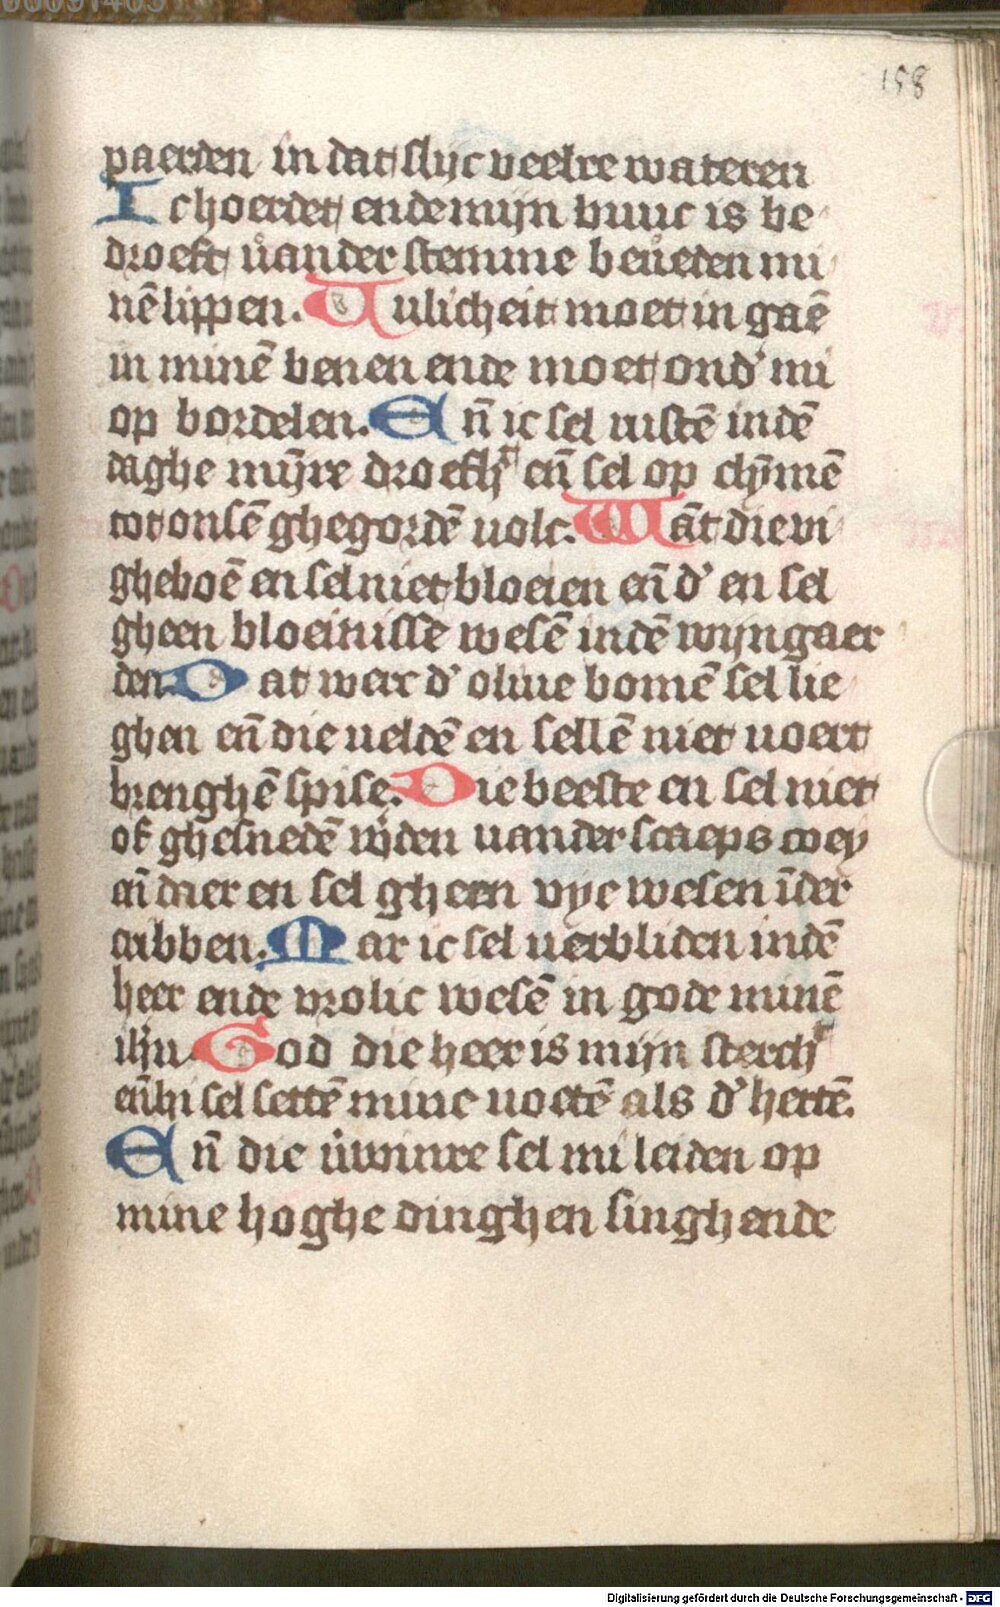 158
paerden in dat slijc veelre wateren
Ic hoerdet ende mijn buuc is be
droeft vander stemme beueden mi
nē lippen. Uulicheit moet in gaē
in minē benen ende moet ond' mi
op bordelen. Eñ ic sel rustē indē
daghe mijre droefhᵗ eñ sel op clȳmē
tot onsē ghegordē uolc. Wāt die vi
gheboē en sel niet bloeien eñ d' en sel
gheen bloeinisse wesē indē wijngaer
den. Dat werc d' oliue bomē sel lie
ghen eñ die ueldē en sellē niet uoert
brenghē spise. Die beeste en sel niet
of ghesnedē w'den uander scaeps coey
eñ daer en sel gheen vye wesen īder
cribben. Mar ic sel uerbliden indē
heer ende vrolic wesē in gode minē
ihu. God die heer is mijn stercᵗ
eñ hi sel settē mine uoetē als d' hertē.
Eñ die v'winre sel mi leiden op
mine hoghe dinghen singhende
Digitalisierung gefördert durch die Deutsche Forschungsgemeinschaft - DFG